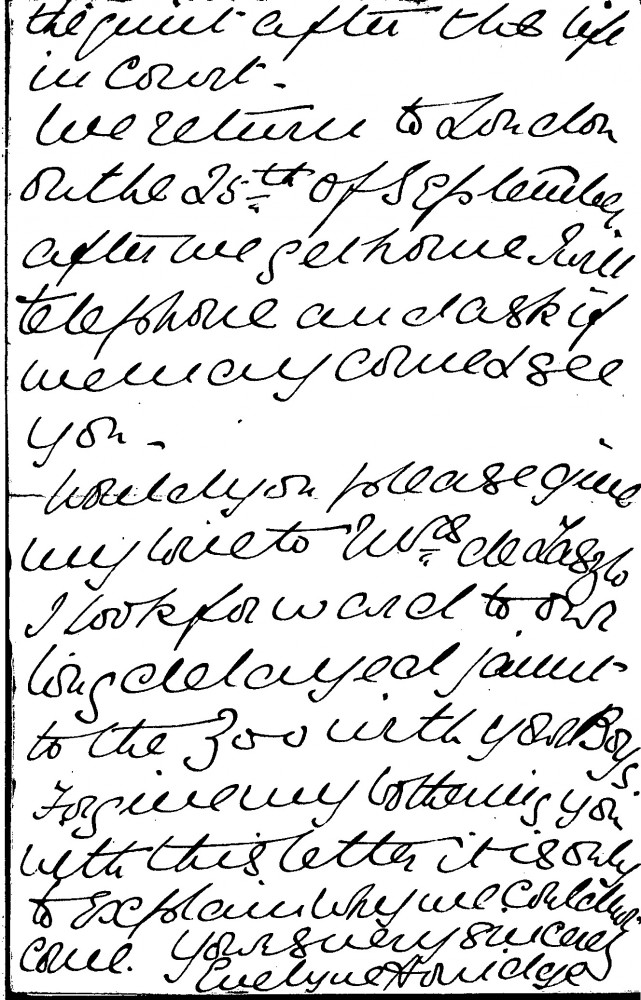 the quiet after this life
in Court -
We return to London
on the 25th of September
after we get home I will
telephone and ask if
we may come & see
you -
Would you please give
my love to Mrs de Laszlo
I look forward to our
long delayed jaunt
to the Zoo with your Boys.
Forgive my bothering you
with this letter it is only
to explain why we couldn't
come. Yours very sincerely
Evelyn